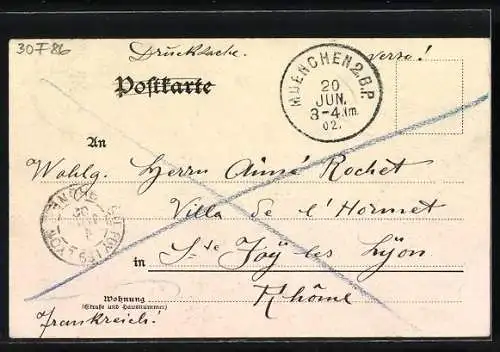 30-F 86
Drucksache. verso!
Postkarte
MUENCHEN 2.B.P.
20
JUN.
3-4.Nm.
02.
An
Wohlg. Herrn Aimé Rochet
Villa de l'Hormet
Ste Foÿ les Lÿon
in
Rhône
Wohnung
(Straße und Hausnummer)
Frankreich!